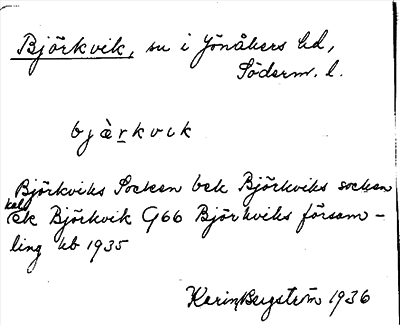 Björkvik, sn i Jönåkers hd,
Söderm. l.
bjä̀r̲kvik
Björkviks Socken bek Björkviks socken
kallök Björkvik G66 Björkviks försam-
ling kb 1935
Karin Bergström 1936